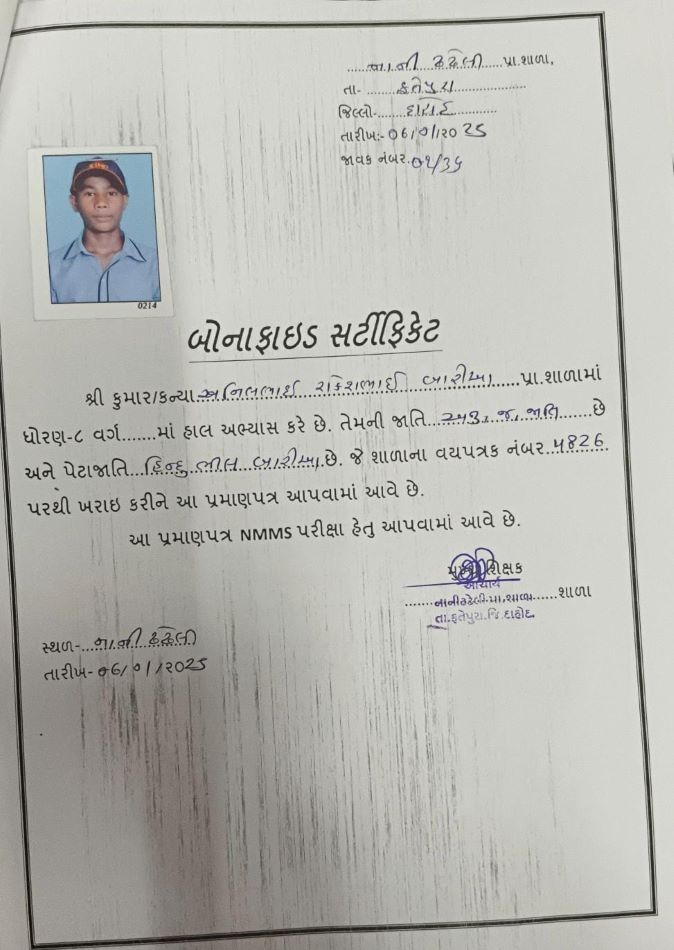 નાની ઢઢેલી પ્રા.શાળા,
તા- ફતેપુરા
જિલ્લો- દાહોદ
તારીખ:- ૦6/૦1/૨૦25
જાવક નંબર.
0214
બોનાફાઇડ સર્ટીફિકેટ
શ્રી કુમાર/કન્યા અનિલભાઈ રાકેશભાઈ બારીઆ પ્રા.શાળામાં
ધોરણ-૮ વર્ગ.......માં હાલ અભ્યાસ કરે છે. તેમની જાતિ અનુ.જ.જાતિ છે
અને પેટાજાતિ હિન્દુ ભીલ બારીઆ છે. જે શાળાના વયપત્રક નંબર
પરથી ખરાઇ કરીને આ પ્રમાણપત્ર આપવામાં આવે છે.
આ પ્રમાણપત્ર NMMS પરીક્ષા હેતુ આપવામાં આવે છે.
મુખ્ય શિક્ષક
આચાર્ય
નાની ઢઢેલી પ્રા. શાળા શાળા
તા.ફતેપુરા.જિ.દાહોદ
સ્થળ- નાની ઢઢેલી
તારીખ- ૦6/૦1/૨૦25